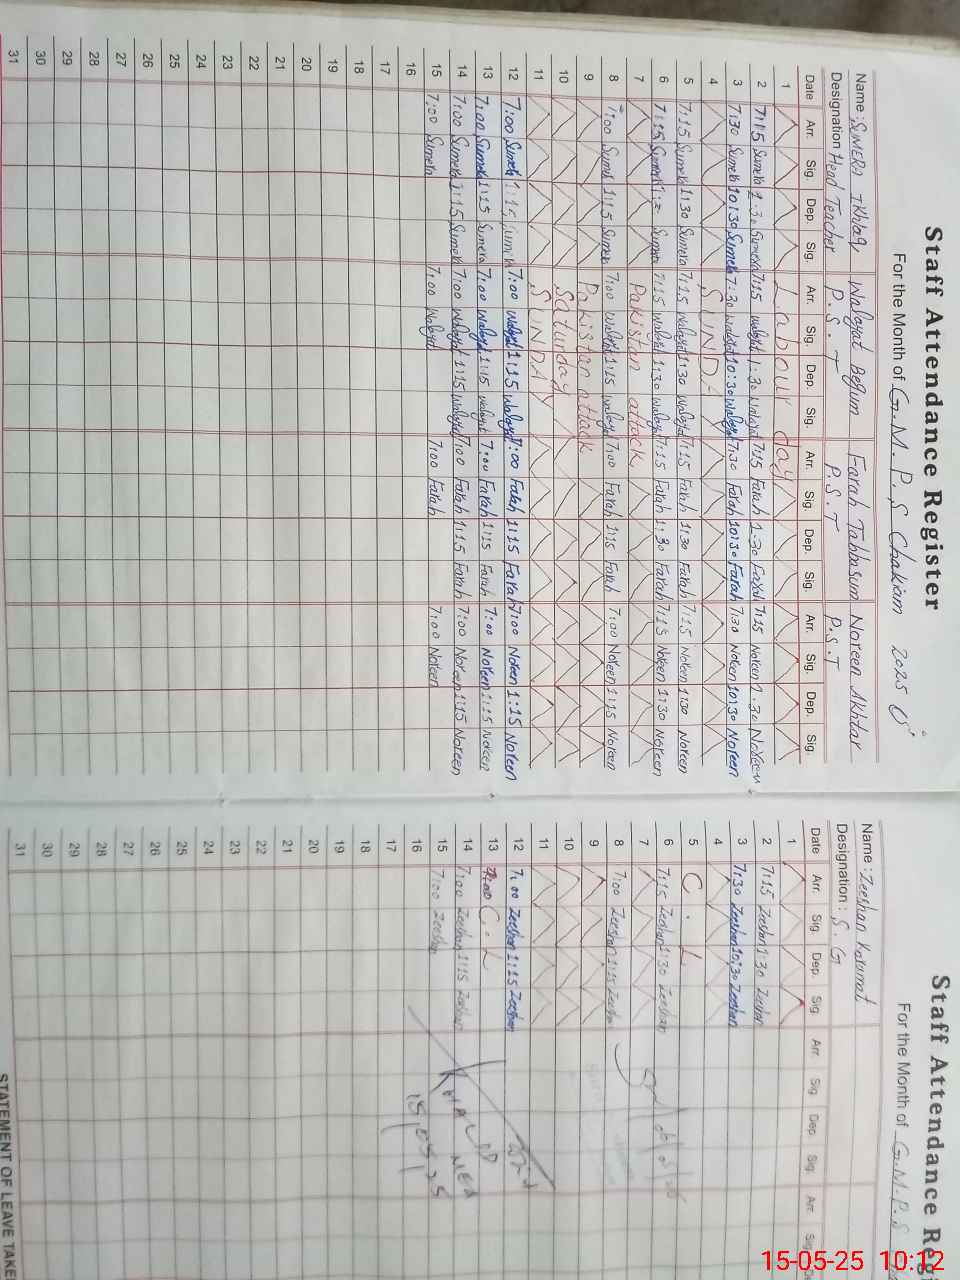 Staff Attendance Register
For the Month of G.M.P.S Chakiam 2025
Name : SUMERA IKhlaq Walayat Begum Farah Tabbasum Noreen Akhtar
Designation Head Teacher P.S.T P.S.T P.S.T
Date Arr. Sig. Dep. Sig. Arr. Sig. Dep. Sig. Arr. Sig. Dep. Sig. Arr. Sig. Dep. Sig.
1 Labour day
2 7:15 Sumera 1:30 Sumera 7:15 Walayat 1:30 Walayat 7:15 Farah 1:30 Farah 7:15 Noreen 1:30 Noreen
3 7:30 Sumera 10:30 Sumera 7:30 Walayat 10:30 Walayat 7:30 Farah 10:30 Farah 7:30 Noreen 10:30 Noreen
4 SUNDAY
5 7:15 Sumera 1:30 Sumera 7:15 Walayat 1:30 Walayat 7:15 Farah 1:30 Farah 7:15 Noreen 1:30 Noreen
6 7:15 Sumera Sumera 7:15 Walayat 1:30 Walayat 7:15 Farah 1:30 Farah 7:15 Noreen 1:30 Noreen
7 Pakistan attack
8 7:00 Sumera 1:15 Sumera 7:00 Walayat 1:15 Walayat 7:00 Farah 1:15 Farah 7:00 Noreen 1:15 Noreen
9 Pakistan attack
10 Saturday
11 SUNDAY
12 7:00 Sumera 1:15 Sumera 7:00 Walayat 1:15 Walayat 7:00 Farah 1:15 Farah 7:00 Noreen 1:15 Noreen
13 7:00 Sumera 1:15 Sumera 7:00 Walayat 1:15 Walayat 7:00 Farah 1:15 Farah 7:00 Noreen 1:15 Noreen
14 7:00 Sumera 1:15 Sumera 7:00 Walayat 1:15 Walayat 7:00 Farah 1:15 Farah 7:00 Noreen 1:15 Noreen
15 7:00 Sumera 7:00 Walayat 7:00 Farah 7:00 Noreen
16
17
18
19
20
21
22
23
24
25
26
27
28
29
30
31
Staff Attendance Reg
For the Month of G.M.P.S
Name : Zeeshan Karamat
Designation : S.G
Date Arr. Sig. Dep. Sig. Arr. Sig. Dep. Sig. Arr. Sig.
1
2 7:15 Zeeshan 1:30 Zeeshan
3 7:30 Zeeshan 10:30 Zeeshan
4
5 C.L
6 7:15 Zeeshan 1:30 Zeeshan
7
8 7:00 Zeeshan 1:15 Zeeshan
9
10
11
12 7:00 Zeeshan 1:15 Zeeshan
13 7:00 C.L
14 7:00 Zeeshan 1:15 Zeeshan
15 7:00 Zeeshan
16
17
18
19
20
21
22
23
24
25
26
27
28
29
30
31
15,05,25
STATEMENT OF LEAVE TAKE
15-05-25 10:12